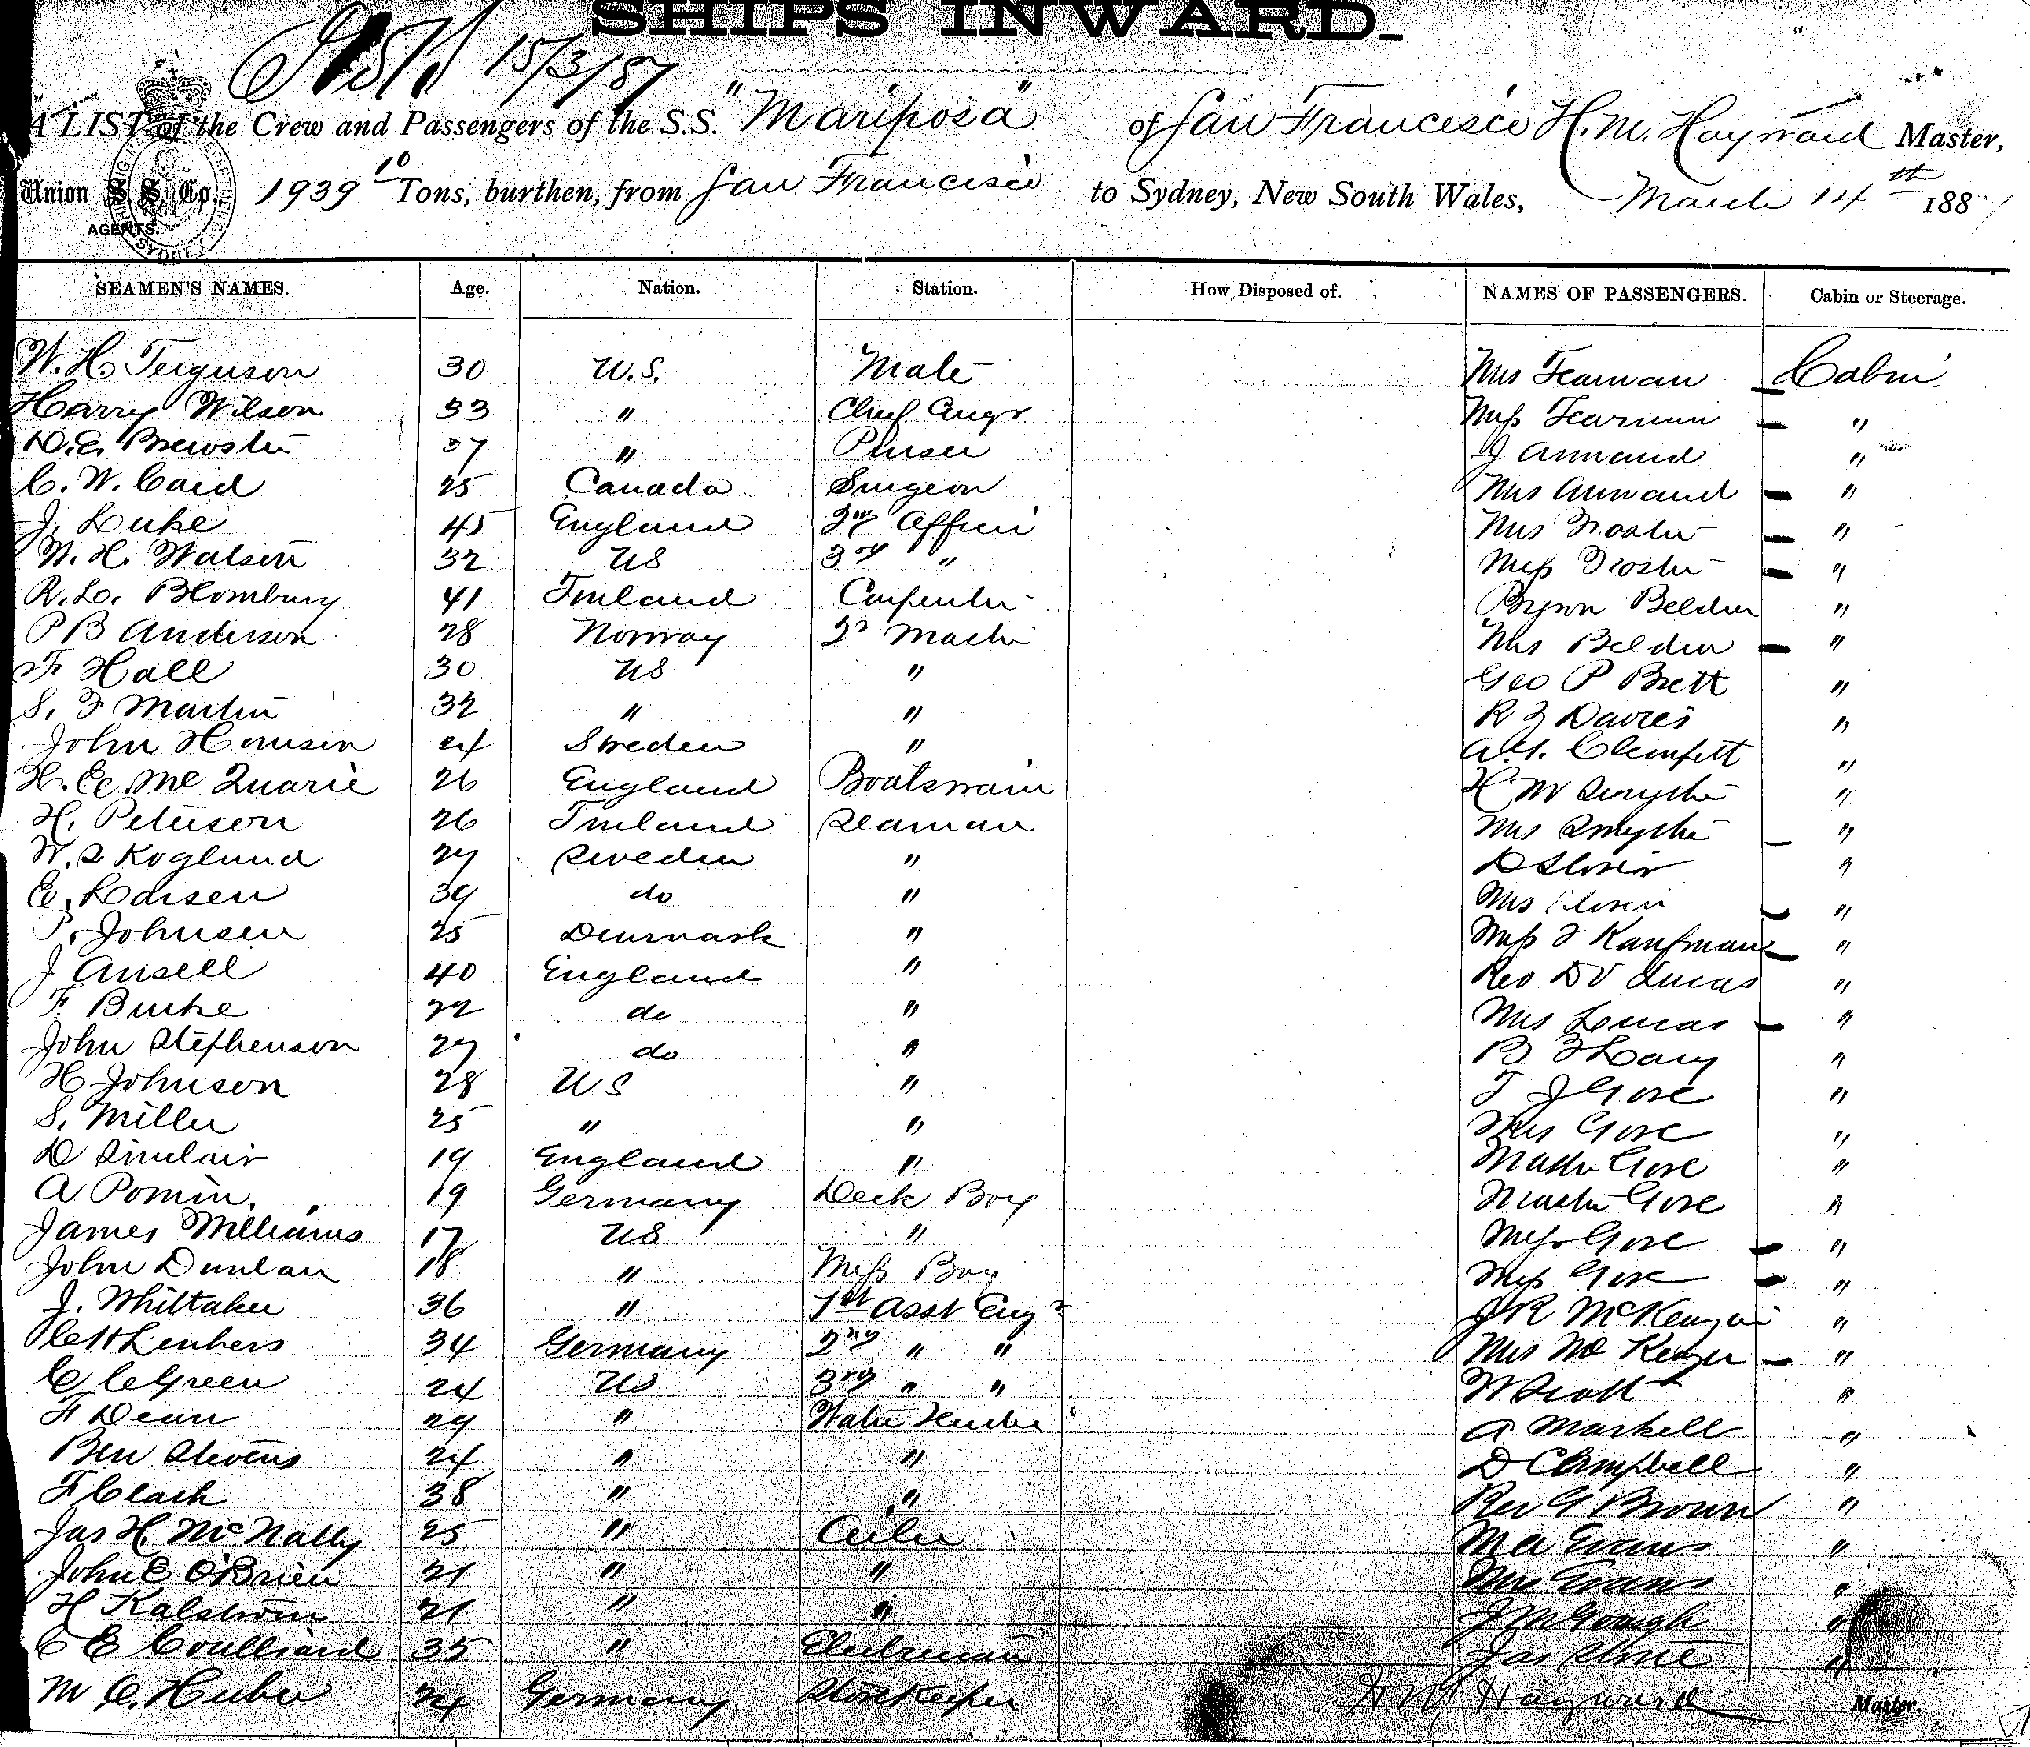 SHIPS INWARD.
15/3/87
A LIST of the Crew and Passengers of the S.S. "Mariposa" of San Francisco H. M. Hayward Master,
Union S. S. Co., 1939 10 Tons, burthen, from San Francisco to Sydney, New South Wales, March 14th 1887
AGENTS.
SYDNEY
SEAMEN'S NAMES. Age. Nation. Station. How Disposed of. NAMES OF PASSENGERS. Cabin or Steerage.
W. H. Ferguson 30 U.S. Mate Mrs Fearman Cabin
Harry Wilson 33 " Chief Engr Miss Fearman "
D. E. Brewster 37 " Purser J Armand "
C. W. Card 25 Canada Surgeon Mrs Armand "
J. Luke 45 England 2nd Officer Mrs Froster "
W. H. Watson 32 US 3rd " Miss Froster "
R. L. Blomburg 41 Finland Carpenter Byron Belden "
P B Anderson 28 Norway Mrs Belden "
F Hall 30 US " Geo P Brett "
S. F Martin 32 " " R J Davies "
John 24 Sweden " "
H. Mc Quarie 26 England Boatswain H W Smythe "
H. Peterson 26 Finland Seaman Mrs Smythe "
W. Skoglund 27 Sweden " D "
E. Larsen 39 do " Mrs "
P. Johnsen 25 Denmark " Miss F Kaufman "
J Ansell 40 England " Rev D V Lucas "
F Burke 22 do " Mrs Lucas "
John Stephenson 27 do " B "
H Johnson 28 US " T J Gore "
S. Miller 25 " " Mrs Gore "
D Sinclair 19 England " Master Gore "
A Pomin 19 Germany Deck Boy Master Gore "
James Williams 17 US " Miss Gore "
John Dunlan 18 " Mess Boy Miss Gore "
J. Whittaker 36 " 1st Asst Engr J R McKenzie "
34 Germany 2nd " " Mrs McKenzie "
C C Green 24 US 3rd " " W Scott "
F Dean 29 " Water Tender A Markell "
Ben Stevens 24 " " D Campbell "
F Clark 38 " " Rev G Brown "
Jas H. McNally 25 " Oiler M A Evans "
John E O'Brien 21 " " Mrs Evans "
H Kalstrom 21 " " J McGough "
C E Coulliard 35 " Jas "
M O. Huber 24 Germany Storekeeper H M Hayward Master